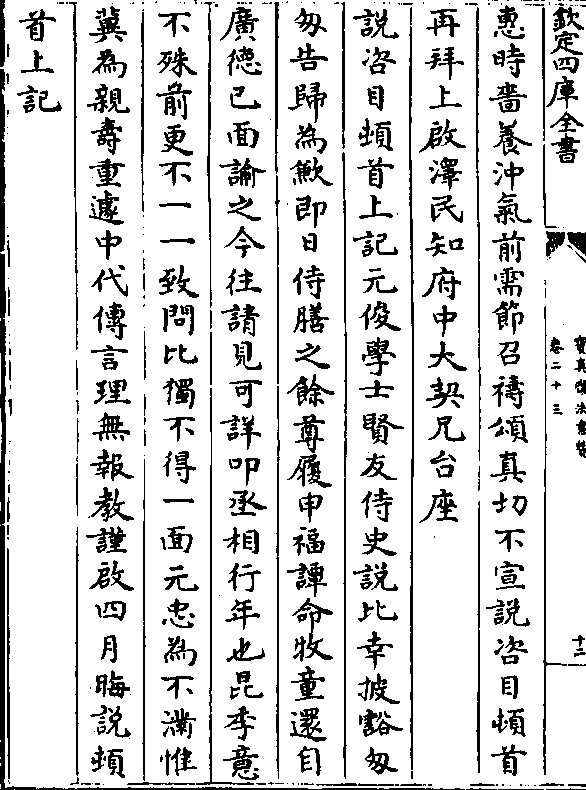 欽定四庫全書
寶真齋法書贊
卷二十三
十二
惠時嗇養沖氣前需節召禱頌真切不宣説咨目頓首
再拜上啟澤民知府中大契兄台座
説咨目頓首上記元俊學士賢友侍史説比幸披豁匆
匆告歸為歉即日侍膳之餘尊履申福譚命牧童還自
廣徳已面論之今往請見可詳叩丞相行年也昆季意
不殊前更不一一致問比獨不得一面元忠為不滿惟
冀為親壽重遽中代傳言理無報教謹啟四月晦説頓
首上記